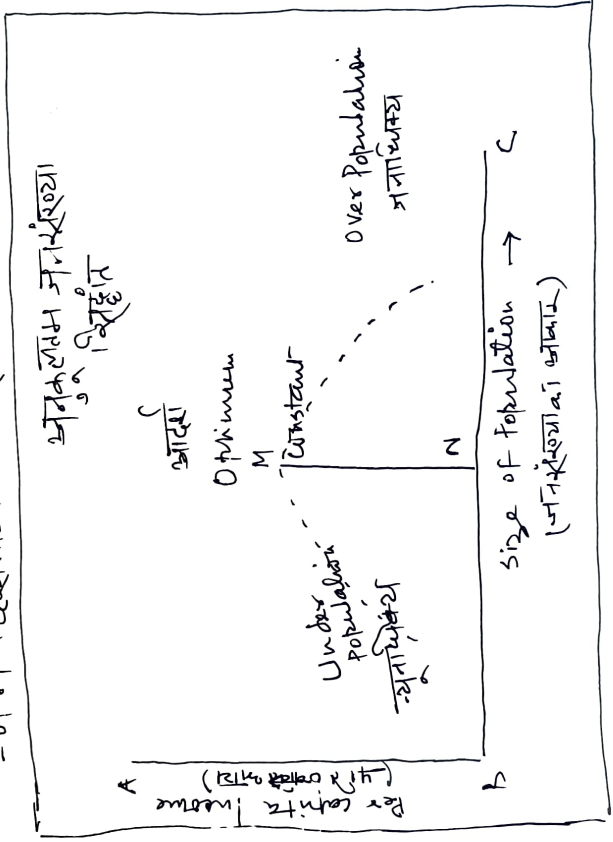 अनुकूलतम जनसंख्या
सिद्धांत
आदर्श
Optimum
M
Constant
Under
Population
Over Population
जनाधिक्य
N
A
Per capita Income
B
C
Size of Population →
(जनसंख्या का आकार)